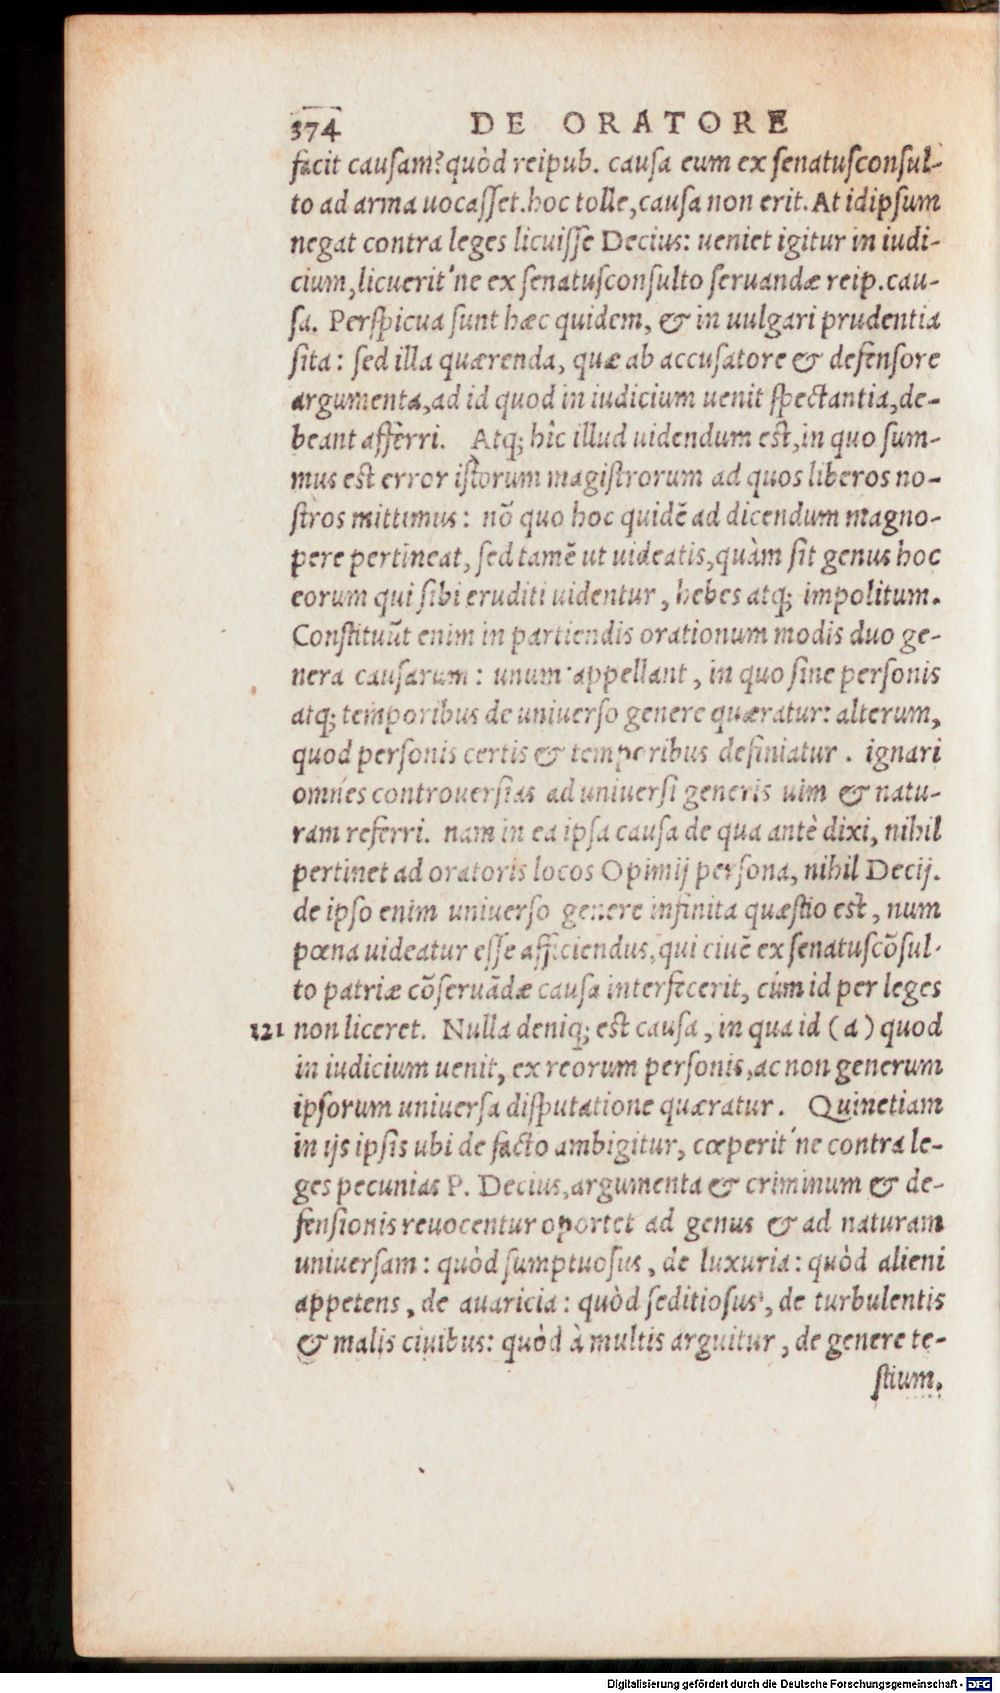 374 DE ORATORE
facit causam? quòd reipub. causa eum ex senatusconsul-
to ad arma uocasset. hoc tolle, causa non erit. At idipsum
negat contra leges licuisse Decius: ueniet igitur in iudi-
cium, licuerit'ne ex senatusconsulto seruandæ reip. cau-
sa. Perspicua sunt hæc quidem, & in uulgari prudentia
sita: sed illa quærenda, quæ ab accusatore & defensore
argumenta, ad id quod in iudicium uenit spectantia, de-
beant afferri. Atq; hîc illud uidendum est, in quo sum-
mus est error istorum magistrorum ad quos liberos no-
stros mittimus: nõ quo hoc quidẽ ad dicendum magno-
pere pertineat, sed tamẽ ut uideatis, quàm sit genus hoc
eorum qui sibi eruditi uidentur, hebes atq; impolitum.
Constituũt enim in partiendis orationum modis duo ge-
nera causarum: unum appellant, in quo sine personis
atq; temporibus de uniuerso genere quæratur: alterum,
quod personis certis & temporibus definiatur. ignari
omnes controuersias ad uniuersi generis uim & natu-
ram referri. nam in ea ipsa causa de qua antè dixi, nihil
pertinet ad oratoris locos Opimij persona, nihil Decij.
de ipso enim uniuerso genere infinita quæstio est, num
pœna uideatur esse afficiendus, qui ciuẽ ex senatuscõsul-
to patriæ cõseruãdæ causa interfecerit, cùm id per leges
121 non liceret. Nulla deniq; est causa, in qua id (a) quod
in iudicium uenit, ex reorum personis, ac non generum
ipsorum uniuersa disputatione quæratur. Quinetiam
in ijs ipsis ubi de facto ambigitur, cœperit'ne contra le-
ges pecunias P. Decius, argumenta & criminum & de-
fensionis reuocentur oportet ad genus & ad naturam
uniuersam: quòd sumptuosus, de luxuria: quòd alieni
appetens, de auaricia: quòd seditiosus, de turbulentis
& malis ciuibus: quòd à multis arguitur, de genere te-
stium.
Digitalisierung gefördert durch die Deutsche Forschungsgemeinschaft - DFG